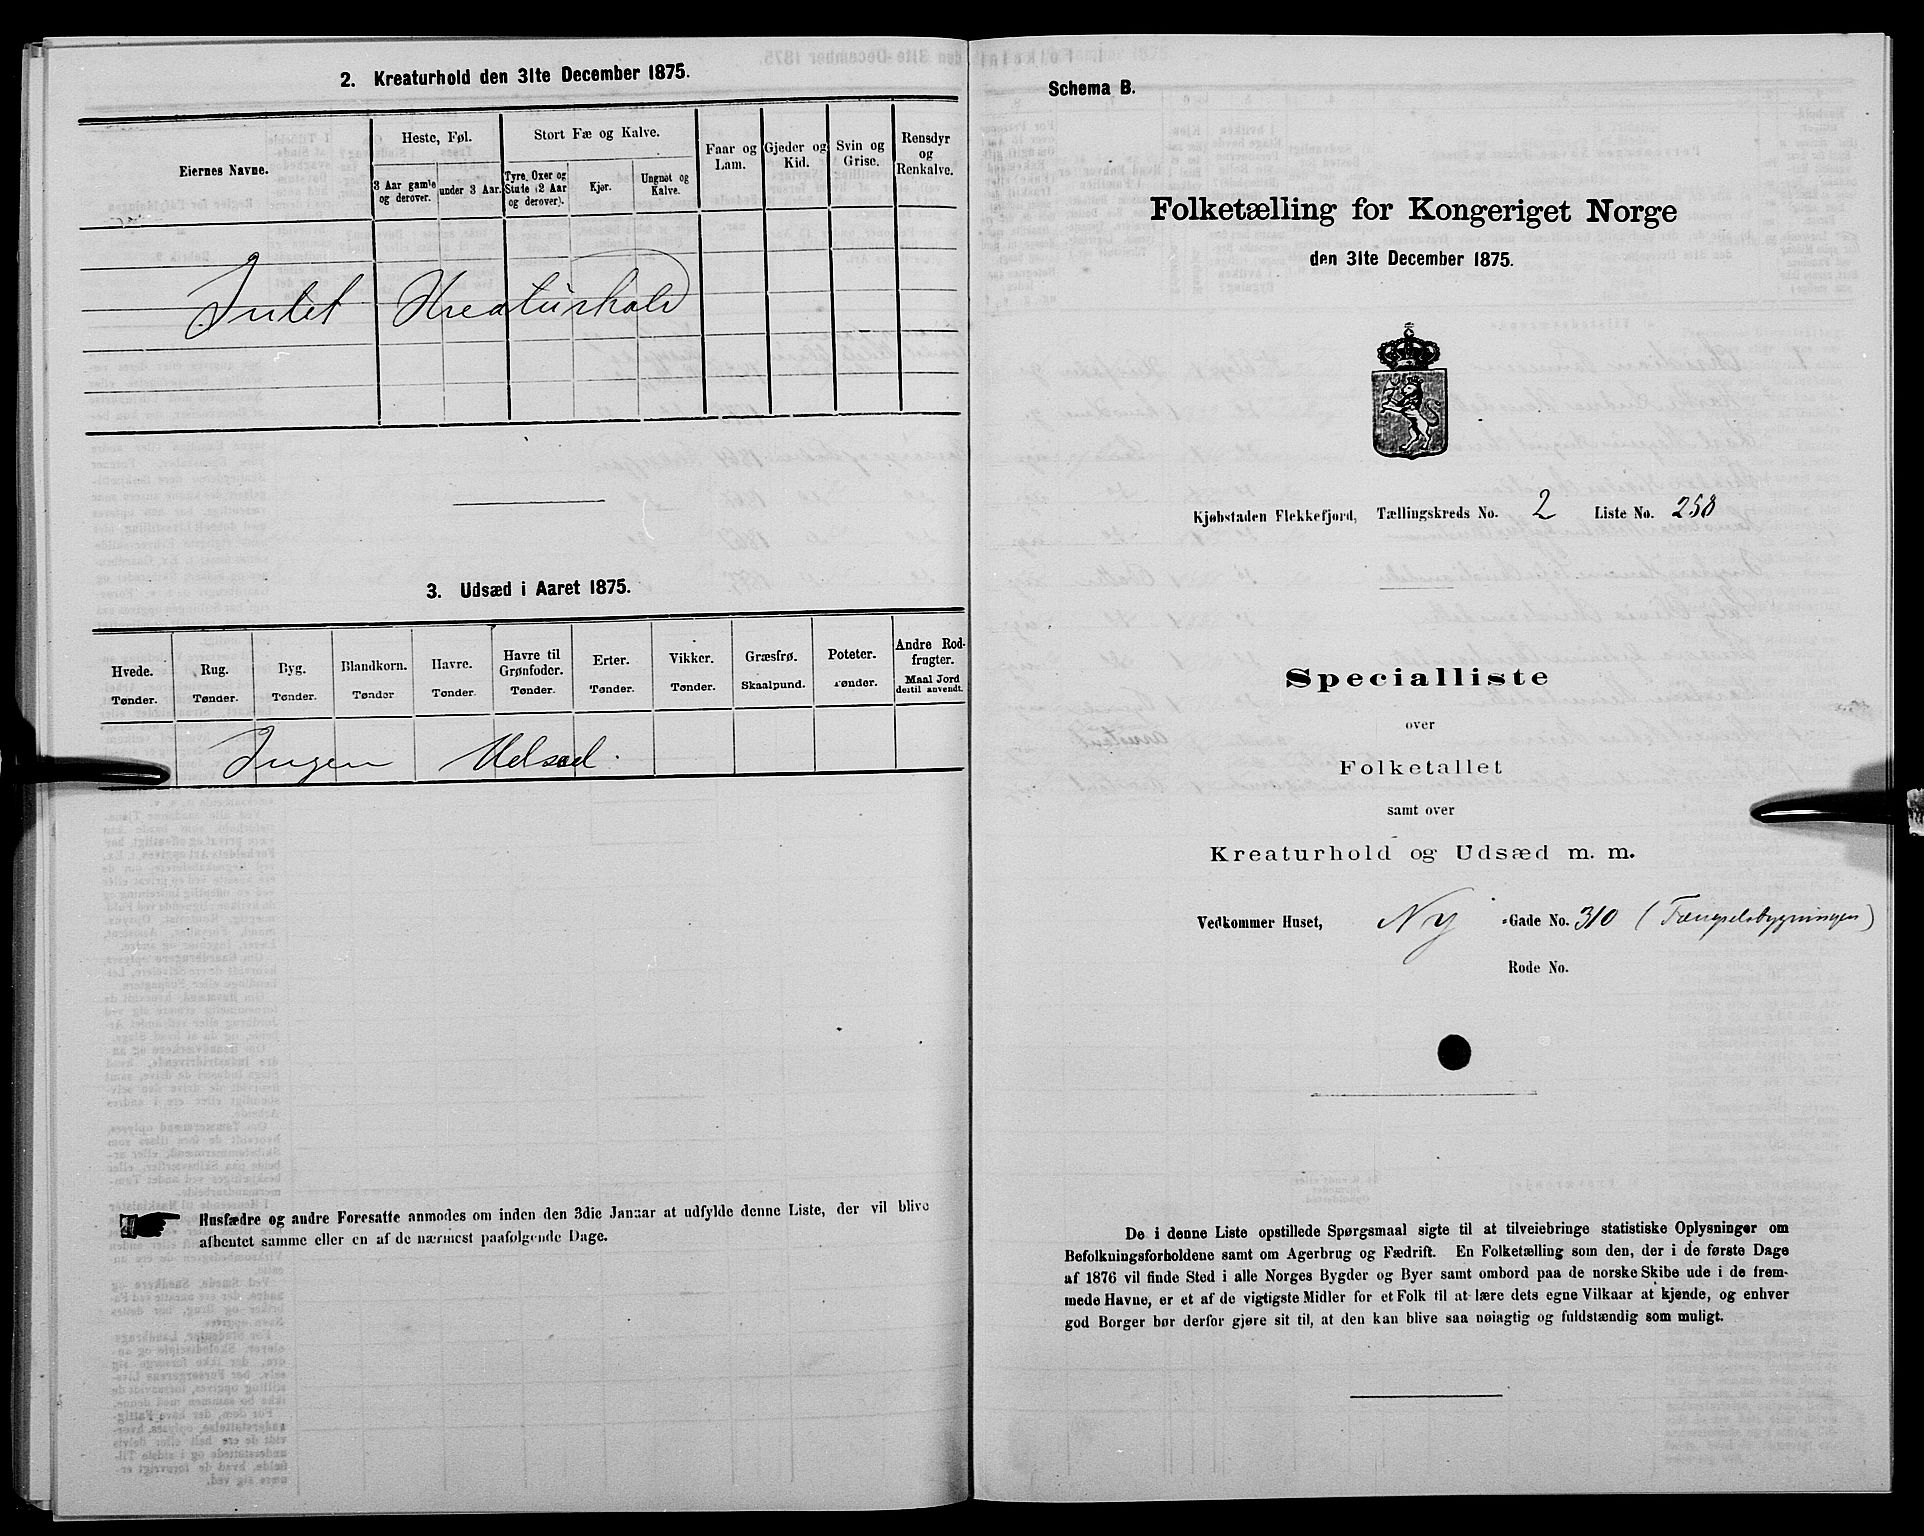 2. Kreaturhold den 31te December 1875.
Eiernes Navne.
Heste, Føl.
Stort Fæ og Kalve.
Faar og Lam.
Gjeder og Kid.
Svin og Grise.
Rensdyr og Renkalve.
3 Aar gamle og derover.
under 3 Aar.
Tyre, Oxer og Stude (2 Aar og derover).
Kjør.
Ungnøt og Kalve.
Intet Kreaturhold
3. Udsæd i Aaret 1875.
Hvede. Tønder.
Rug. Tønder.
Byg. Tønder.
Blandkorn. Tønder
Havre. Tønder.
Havre til Grønfoder. Tønder.
Erter. Tønder.
Vikker. Tønder.
Græsfrø. Skaalpund.
Poteter. Tønder.
Andre Rodfrugter. Maal Jord dertil anvendt.
Ingen Udsæd.
Husfædre og andre Foresatte anmodes om inden den 3die Januar at udfylde denne Liste, der vil blive
afhentet samme eller en af de nærmest paafølgende Dage.
Schema B.
Folketælling for Kongeriget Norge
den 31te December 1875.
Kjøbstaden Flekkefjord, Tællingskreds No. 2 Liste No. 258
Specialliste
over
Folketallet
samt over
Kreaturhold og Udsæd m. m.
Vedkommer Huset, Ny -Gade No. 310 (Fængselsbygningen)
Rode No.
De i denne Liste opstillede Spørgsmaal sigte til at tilveiebringe statistiske Oplysninger om
Befolkningsforholdene samt om Agerbrug og Fædrift. En Folketælling som den, der i de første Dage
af 1876 vil finde Sted i alle Norges Bygder og Byer samt ombord paa de norske Skibe ude i de frem-
mede Havne, er et af de vigtigste Midler for et Folk til at lære dets egne Vilkaar at kjende, og enhver
god Borger bør derfor gjøre sit til, at den kan blive saa nøiagtig og fuldstændig som muligt.